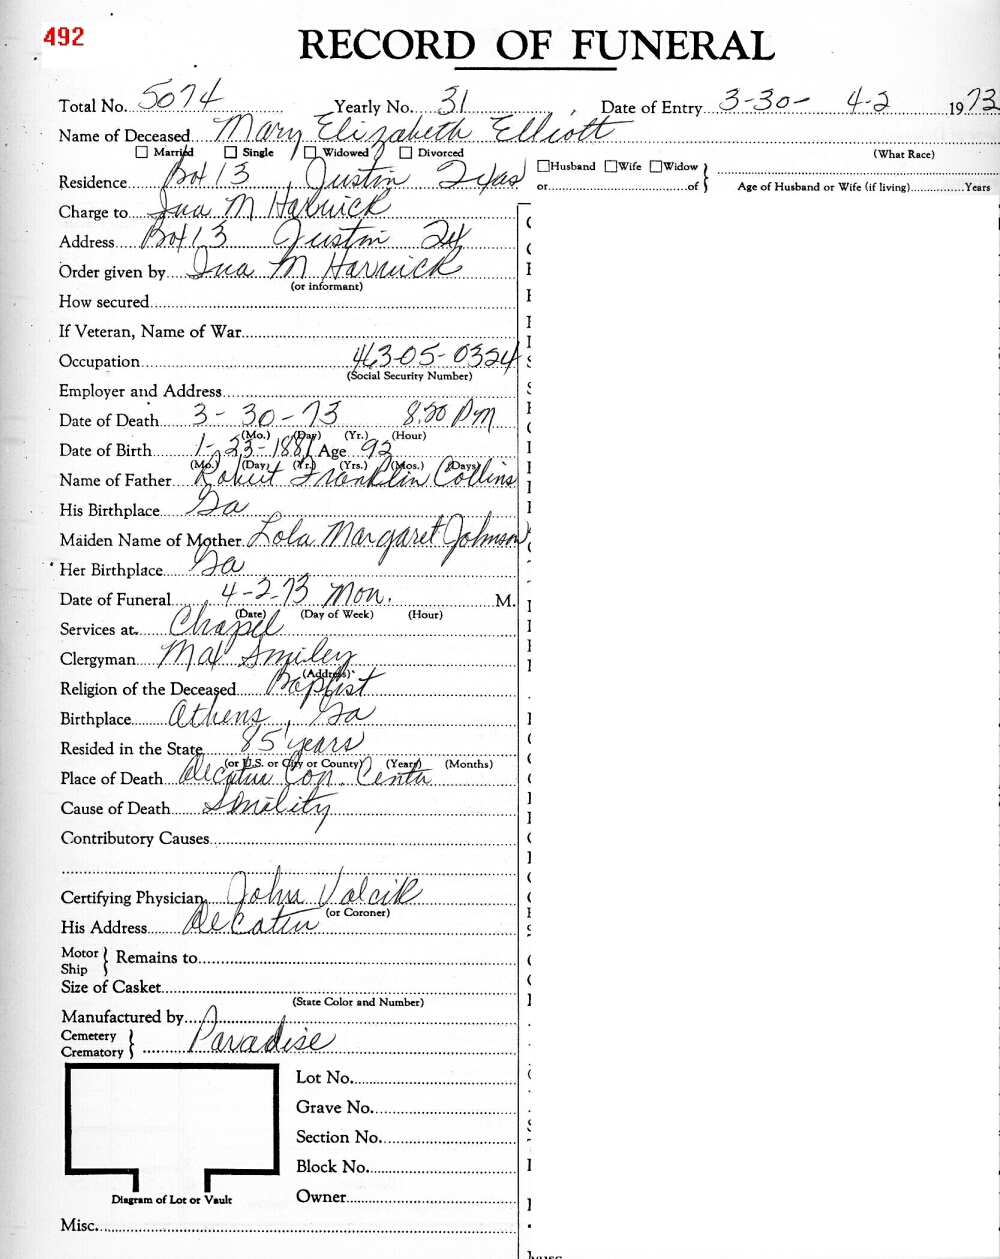 492
RECORD OF FUNERAL
Total No. 5074 Yearly No. 31 Date of Entry 3-30- 4-2 1973
Name of Deceased Mary Elizabeth Elliott
☐ Married ☐ Single ☐ Widowed ☐ Divorced (What Race)
Residence Box 13, Justin Texas ☐ Husband ☐ Wife ☐ Widow
or of Age of Husband or Wife (if living) Years
Charge to Ina M
Address Box 13 Justin Tex
Order given by Ina M
(or informant)
How secured
If Veteran, Name of War
Occupation 463-05-0324
(Social Security Number)
Employer and Address
Date of Death 3-30-73 8:20 PM
(Mo.) (Day) (Yr.) (Hour)
Date of Birth 1-23-1881 Age 92
(Mo.) (Day) (Yr.) (Yrs.) (Mos.) (Days)
Name of Father Robert Franklin Collins
His Birthplace Ga
Maiden Name of Mother Lola Margaret Johnson
Her Birthplace Ga
Date of Funeral 4-2-73 Mon. M.
(Date) (Day of Week) (Hour)
Services at Chapel
Clergyman Smiley
(Address)
Religion of the Deceased Baptist
Birthplace Athens, Ga
Resided in the State 85 years
(or U.S. or City or County) (Years) (Months)
Place of Death Decatur Con. Center
Cause of Death Senility
Contributory Causes
Certifying Physician John Valcik
(or Coroner)
His Address Decatur
Motor
Ship } Remains to
Size of Casket
(State Color and Number)
Manufactured by
Cemetery
Crematory } Paradise
Lot No.
Grave No.
Section No.
Block No.
Diagram of Lot or Vault
Owner
Misc.